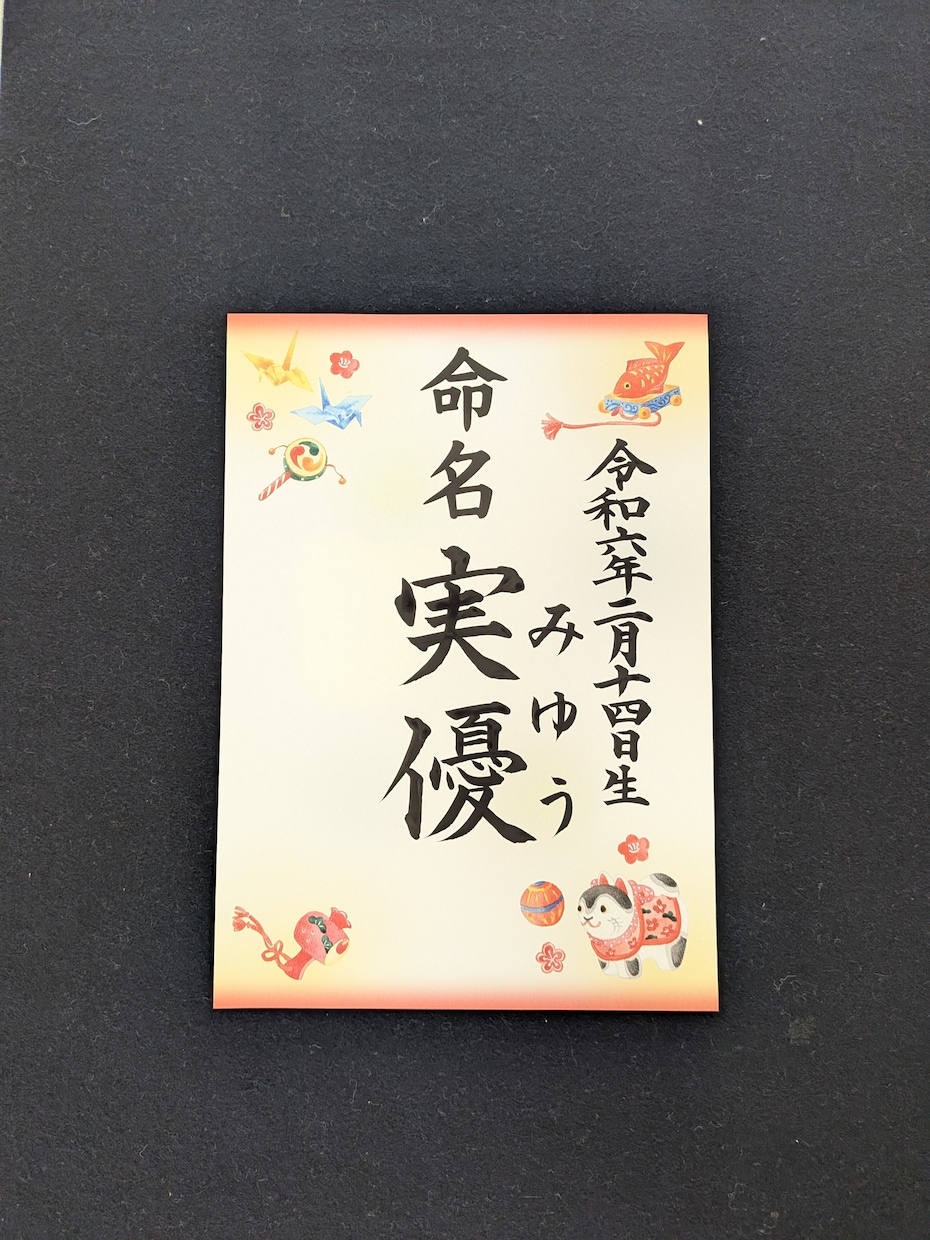 令和六年二月十四日生
みゆう
命名 実優